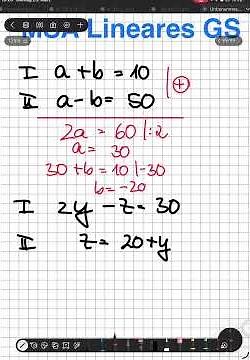 MSA Lineares GS
I a + b = 10 | +
II a - b = 50
2a = 60 | :2
a = 30
30 + b = 10 | -30
b = -20
I 2y - z = 30
II z = 20 + y